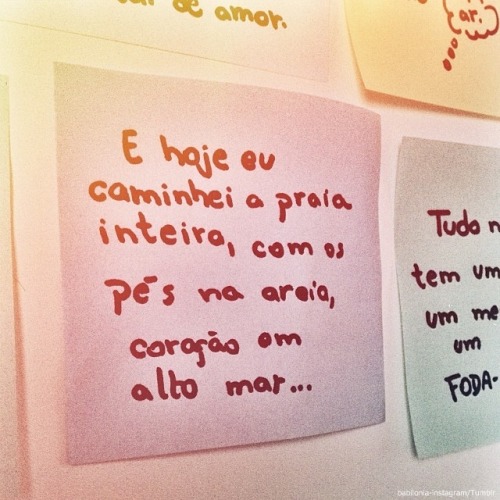 de amor.
ar.
E hoje eu
caminhei a praia
inteira, com os
pés na areia,
coração em
alto mar...
Tudo n
tem um
um me
um
FODA-
babilonia-instagram/Tumblr